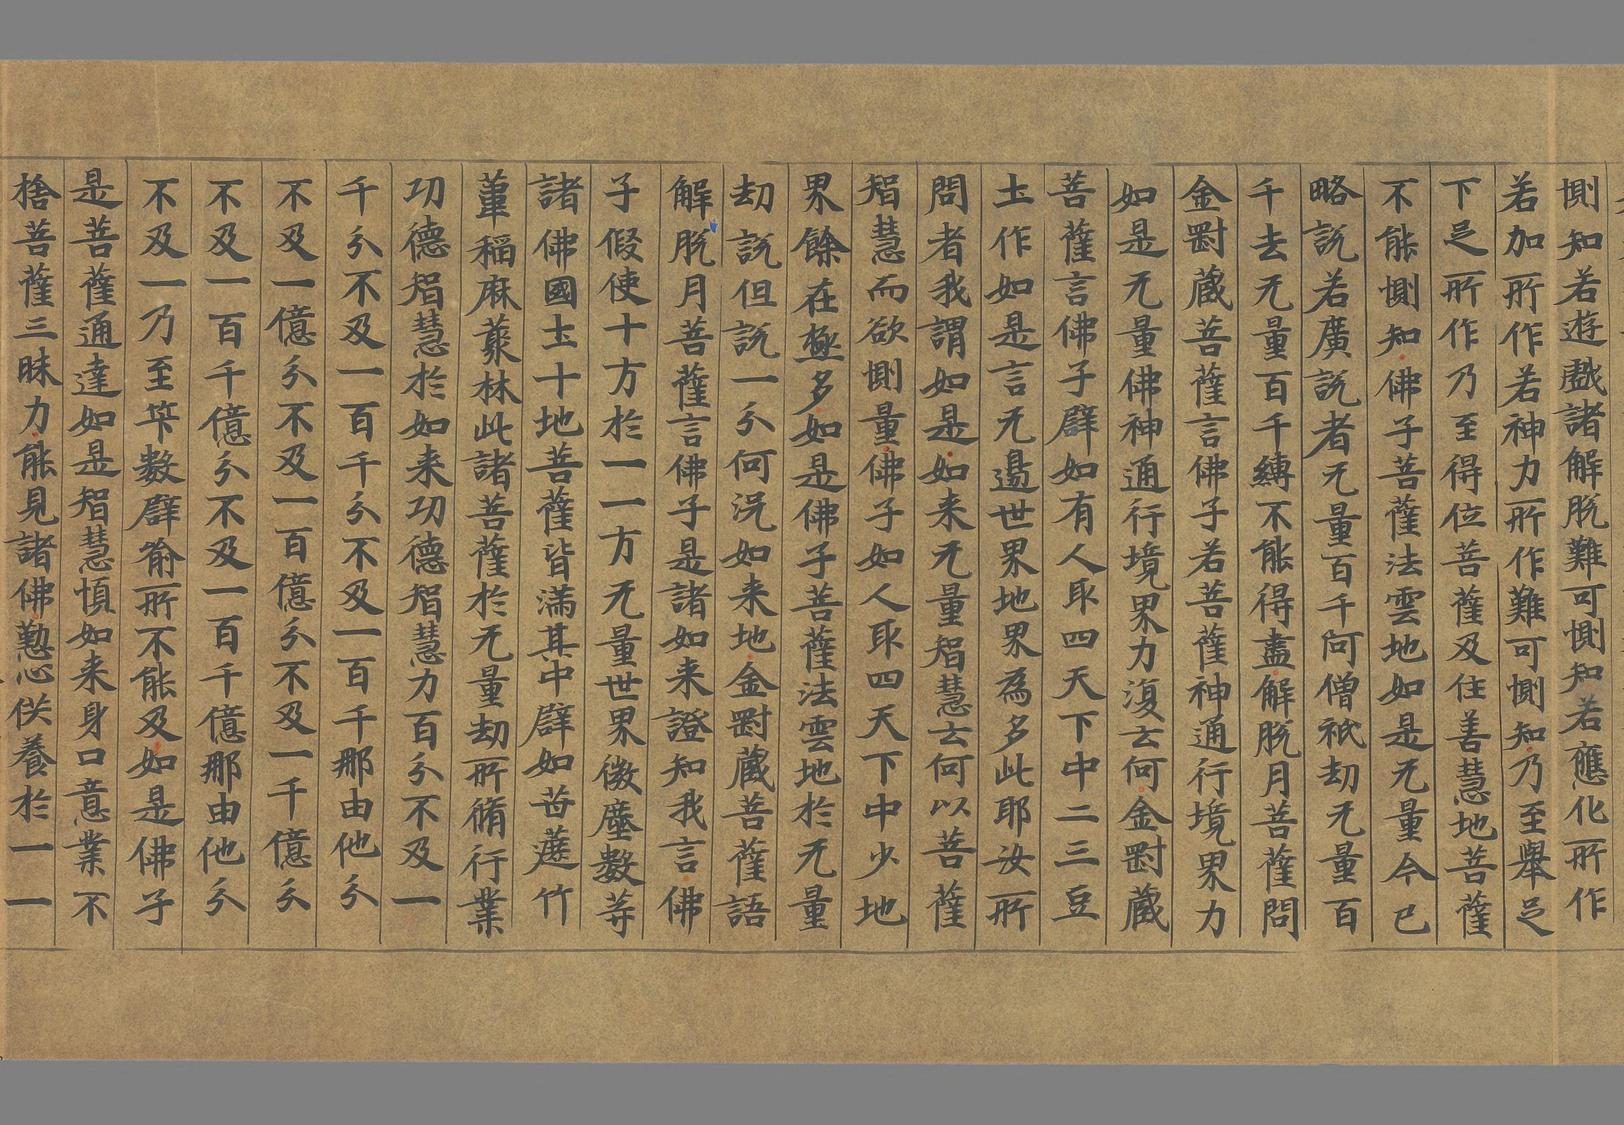 惻知若遊戲諸解脫難可惻知若應化所作
若加所作若神力所作難可惻知乃至舉足
下足所作乃至得位菩薩及住善慧地菩薩
不能惻知佛子菩薩法雲地如是无量今已
略說若廣說者无量百千阿僧祇劫无量百
千去无量百千縛不能得盡解脫月菩薩問
金罰藏菩薩言佛子若菩薩神通行境界力
如是无量佛神通行境界力復云何金罰藏
菩薩言佛子辟如有人取四天下中二三豆
土作如是言无邊世界地界為多此耶汝所
問者我謂如是如来无量智慧云何以菩薩
智慧而欲惻量佛子如人取四天下中少地
界餘在極多如是佛子菩薩法雲地於无量
劫說但說一分何況如来地金罰藏菩薩語
解脫月菩薩言佛子是諸如来證知我言佛
子假使十方於一一方无量世界微塵數等
諸佛國土十地菩薩皆滿其中辟如苷蔗竹
葦稻麻藂林此諸菩薩於无量劫所脩行業
功德智慧於如来功德智慧力百分不及一
千分不及一百千分不及一百千那由他分
不及一億分不及一百億分不及一千億分
不及一百千億分不及一百千億那由他分
不及一乃至筭數辟喻所不能及如是佛子
是菩薩通達如是智慧慎如来身口意業不
捨菩薩三昧力能見諸佛懃心供養於一一